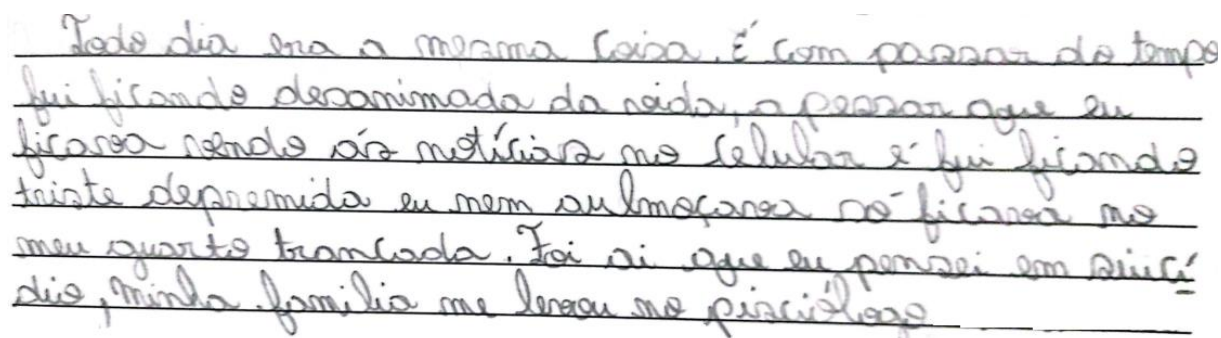 Todo dia era a mesma coisa. É com passar do tempo
fui ficando desanimada da vida, a pessar que eu
ficava vendo ás notíciais no célular é fui ficando
triste depremida eu nem aulmoçava só ficava no
meu quarto trancada. Foi ai que eu pensei em suicí
dio, minha familia me levou no pisciólogo